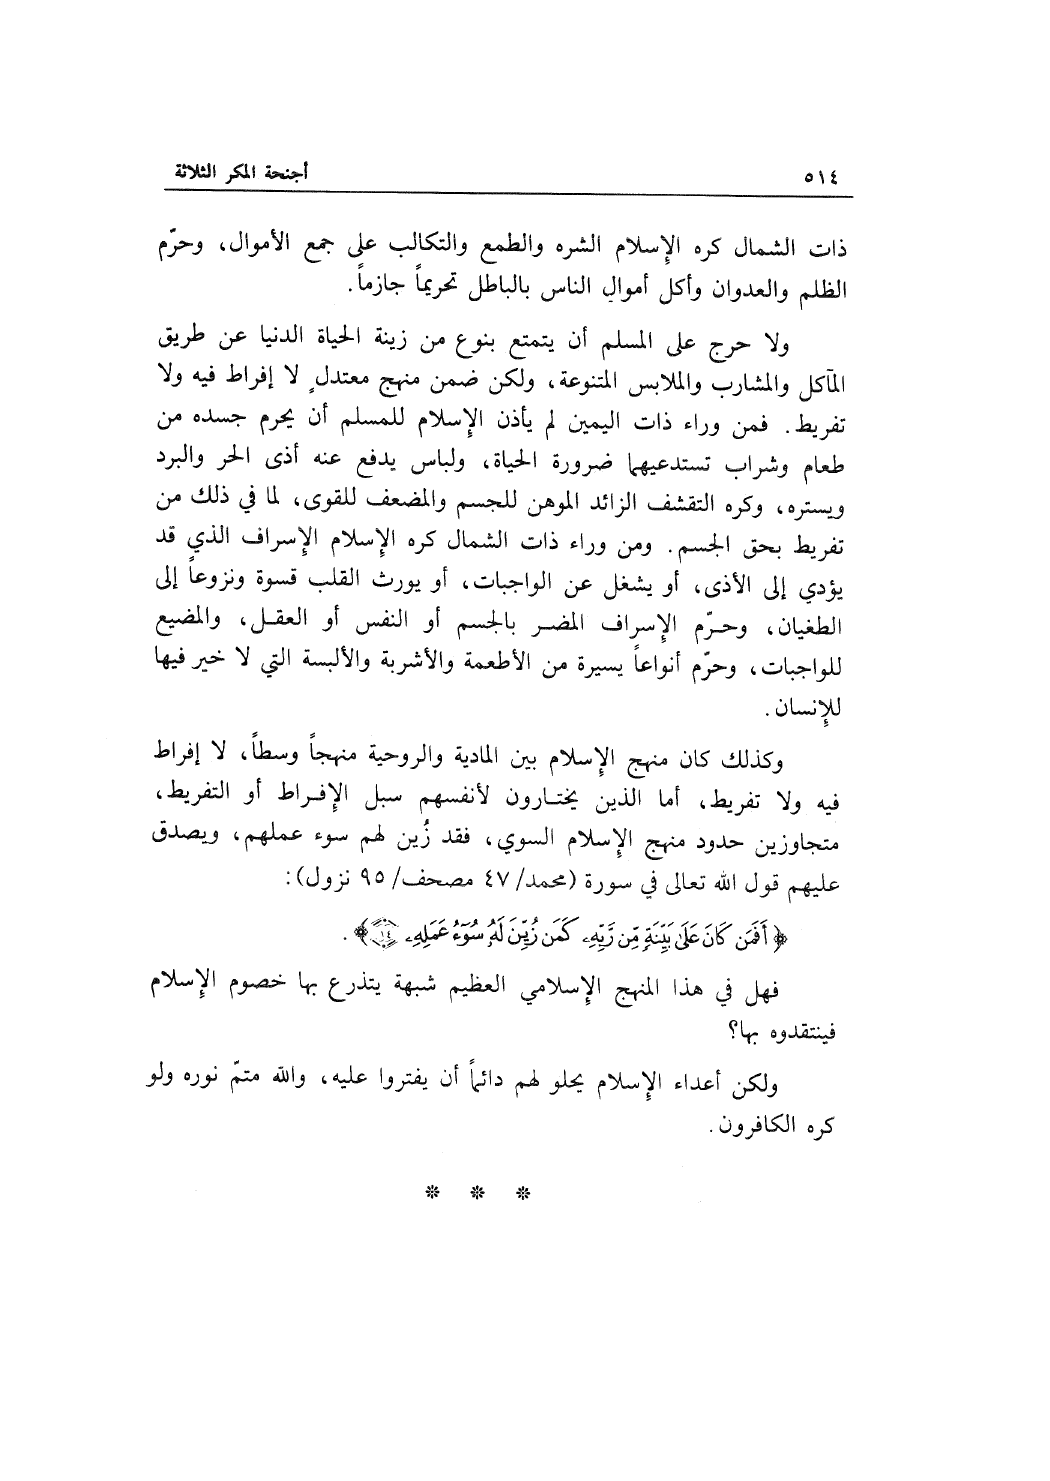 ٥١٤ أجنحة المكر الثلاثة
ذات الشمال كره الإسلام الشره والطمع والتكالب على جمع الأموال، وحرّم
الظلم والعدوان وأكل أموال الناس بالباطل تحريماً جازماً.
ولا حرج على المسلم أن يتمتع بنوع من زينة الحياة الدنيا عن طريق
المآكل والمشارب والملابس المتنوعة، ولكن ضمن منهج معتدلٍ لا إفراط فيه ولا
تفريط. فمن وراء ذات اليمين لم يأذن الإسلام للمسلم أن يحرم جسده من
طعام وشراب تستدعيهما ضرورة الحياة، ولباس يدفع عنه أذى الحر والبرد
ويستره، وكره التقشف الزائد الموهن للجسم والمضعف للقوى، لما في ذلك من
تفريط بحق الجسم. ومن وراء ذات الشمال كره الإسلام الإسراف الذي قد
يؤدي إلى الأذى، أو يشغل عن الواجبات، أو يورث القلب قسوة ونزوعاً إلى
الطغيان، وحرّم الإسراف المضر بالجسم أو النفس أو العقل، والمضيع
للواجبات، وحرّم أنواعاً يسيرة من الأطعمة والأشربة والألبسة التي لا خير فيها
للإنسان.
وكذلك كان منهج الإسلام بين المادية والروحية منهجاً وسطاً، لا إفراط
فيه ولا تفريط، أما الذين يختارون لأنفسهم سبل الإفراط أو التفريط،
متجاوزين حدود منهج الإسلام السوي، فقد زُين لهم سوء عملهم، ويصدق
عليهم قول الله تعالى في سورة (محمد/ ٤٧ مصحف/ ٩٥ نزول):
﴿أَفَمَن كَانَ عَلَىٰ بَيِّنَةٍ مِّن رَّبِّهِۦ كَمَن زُيِّنَ لَهُۥ سُوٓءُ عَمَلِهِۦ ١٤﴾.
فهل في هذا المنهج الإسلامي العظيم شبهة يتذرع بها خصوم الإسلام
فينتقدوه بها؟
ولكن أعداء الإسلام يحلو لهم دائماً أن يفتروا عليه، والله متمّ نوره ولو
كره الكافرون.
* * *